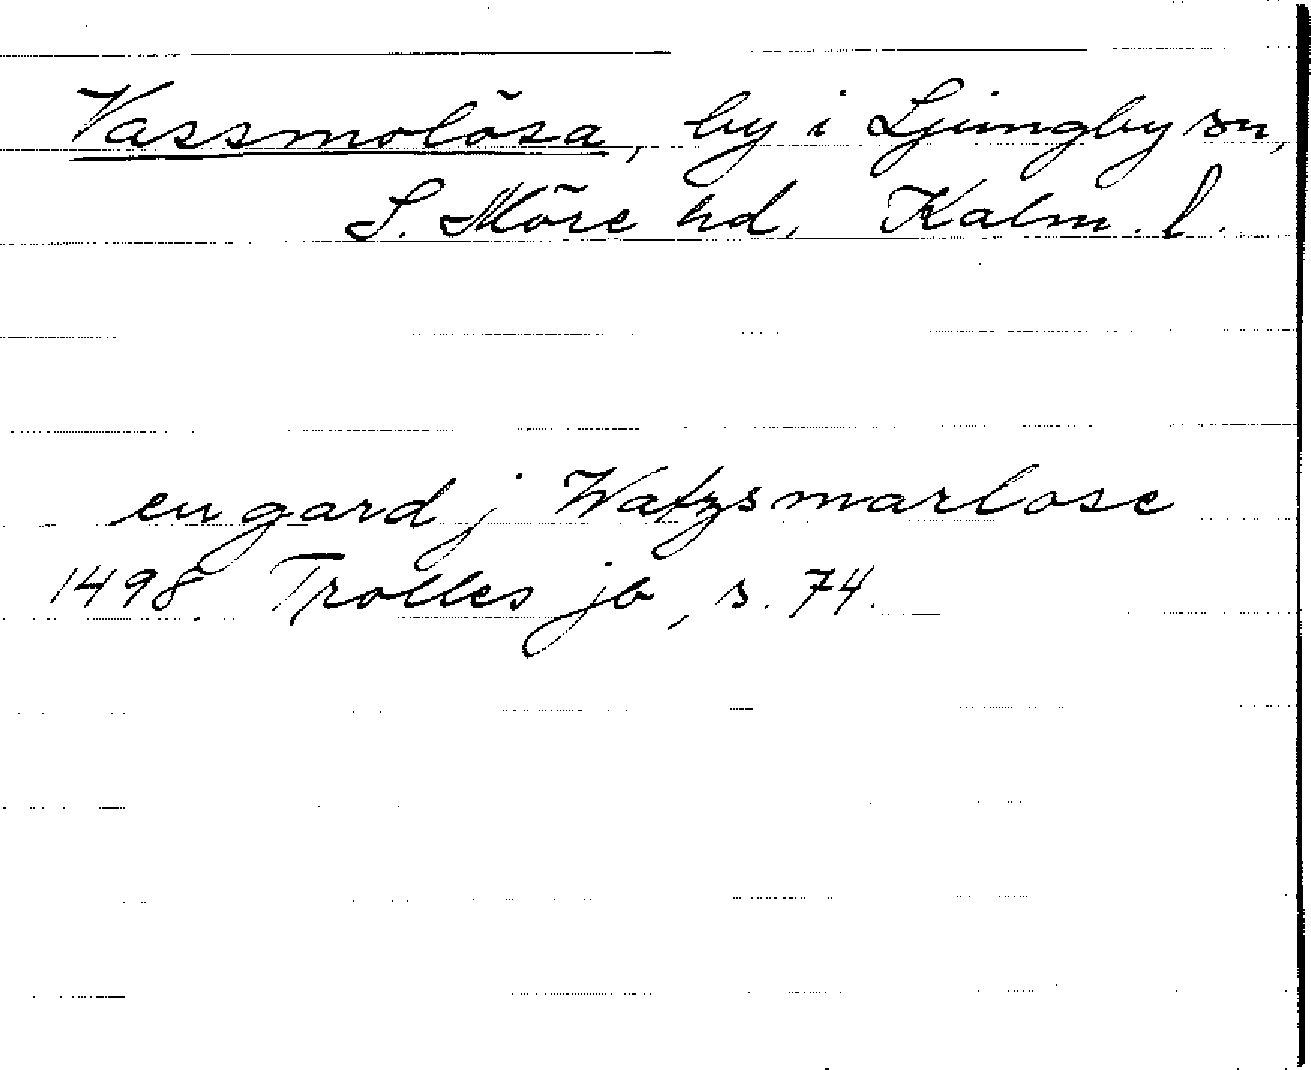 Vassmolösa, by i Ljungby sn,
S. Möre hd, Kalm. l.
en gard j Watzsmarlose
1498. Trolles jb, s. 74.